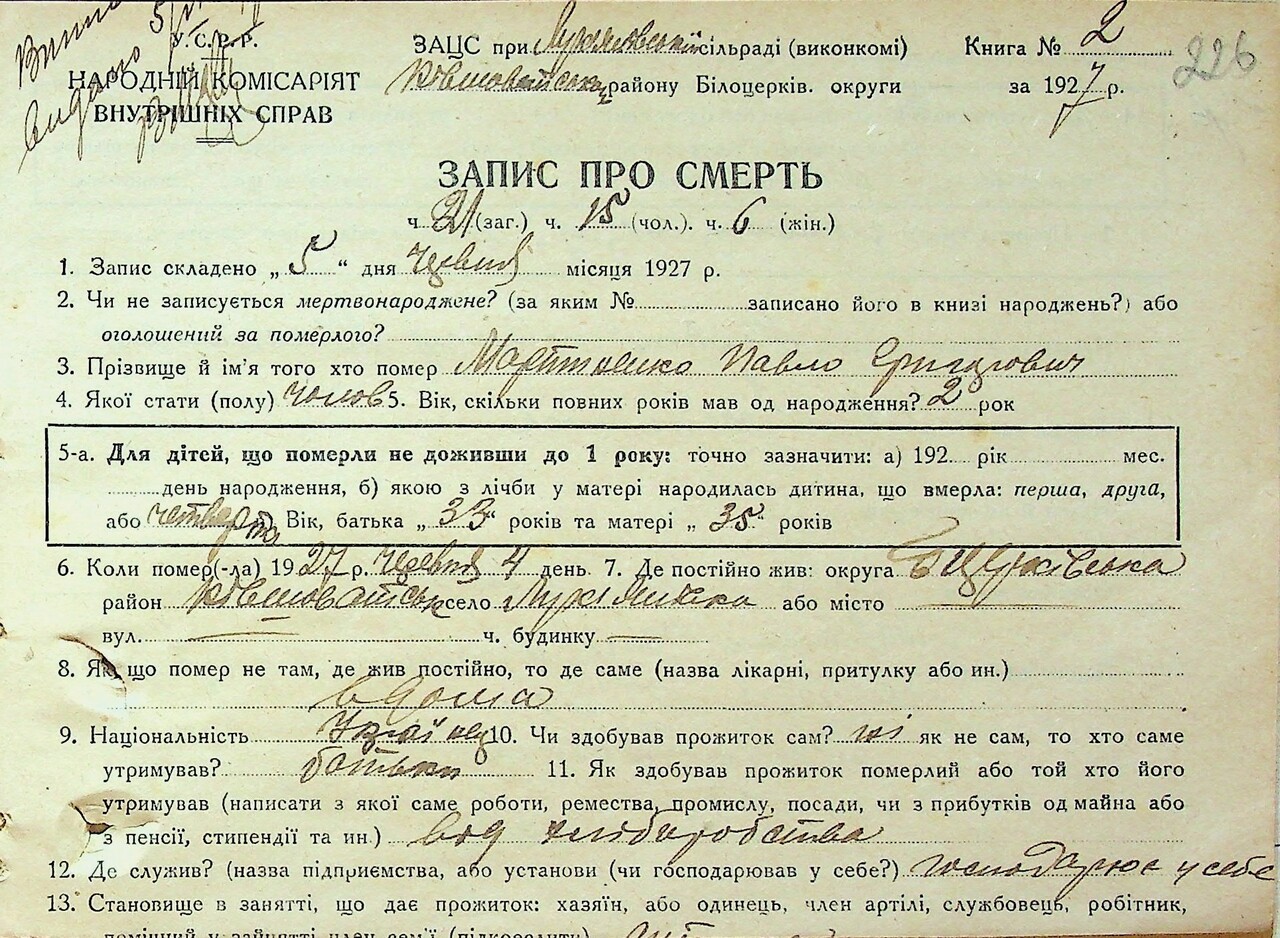 видано
У.С.Р.Р.
НАРОДНІЙ КОМІСАРІЯТ
ВНУТРІШНІХ СПРАВ
ЗАЦС при Лук'янівській сільраді (виконкомі)
району Білоцерків. округи
Книга № 2
за 1927 р.
226
ЗАПИС ПРО СМЕРТЬ
ч 21 (заг.) ч. 15 (чол.). ч. 6 (жін.)
1. Запис складено „ 5 “ дня червня місяця 1927 р.
2. Чи не записується мертвонароджене? (за яким № записано його в книзі народжень?) або
оголошений за померлого?
3. Прізвище й ім'я того хто помер Павло Григорович
4. Якої стати (полу) чолов 5. Вік, скільки повних років мав од народження? 2 рок
5-а. Для дітей, що померли не доживши до 1 року: точно зазначити: а) 192 рік мес.
день народження, б) якою з лічби у матері народилась дитина, що вмерла: перша, друга,
або четверта Вік, батька „ 33 “ років та матері „ 35 “ років
6. Коли помер(-ла) 1927 р. червня 4 день 7. Де постійно жив: округа БЦерківська
район село Лук'янівка або місто
вул. ч. будинку
8. Як що помер не там, де жив постійно, то де саме (назва лікарні, притулку або ин.)
вдома
9. Національність Україн 10. Чи здобував прожиток сам? ні як не сам, то хто саме
утримував? батьки 11. Як здобував прожиток померлий або той хто його
утримував (написати з якої саме роботи, ремества, промислу, посади, чи з прибутків од майна або
з пенсії, стипендії та ин.) від хліборобства
12. Де служив? (назва підприємства, або установи (чи господарював у себе?) господарює у себе
13. Становище в занятті, що дає прожиток: хазяїн, або одинець, член артілі, службовець, робітник,
помічний у зайнятті член сім'ї (підкреслити)